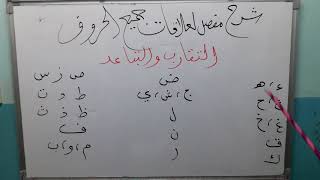 شرح مفصل لعلاقات جميع الحروف
التقارب والتباعد
ء، ه
ع، ح
غ، خ
ق
ك
ض
ج، ش، ي
ل
ن
ر
ص ز س
ط د ت
ظ ذ ث
ف
م، و، ب